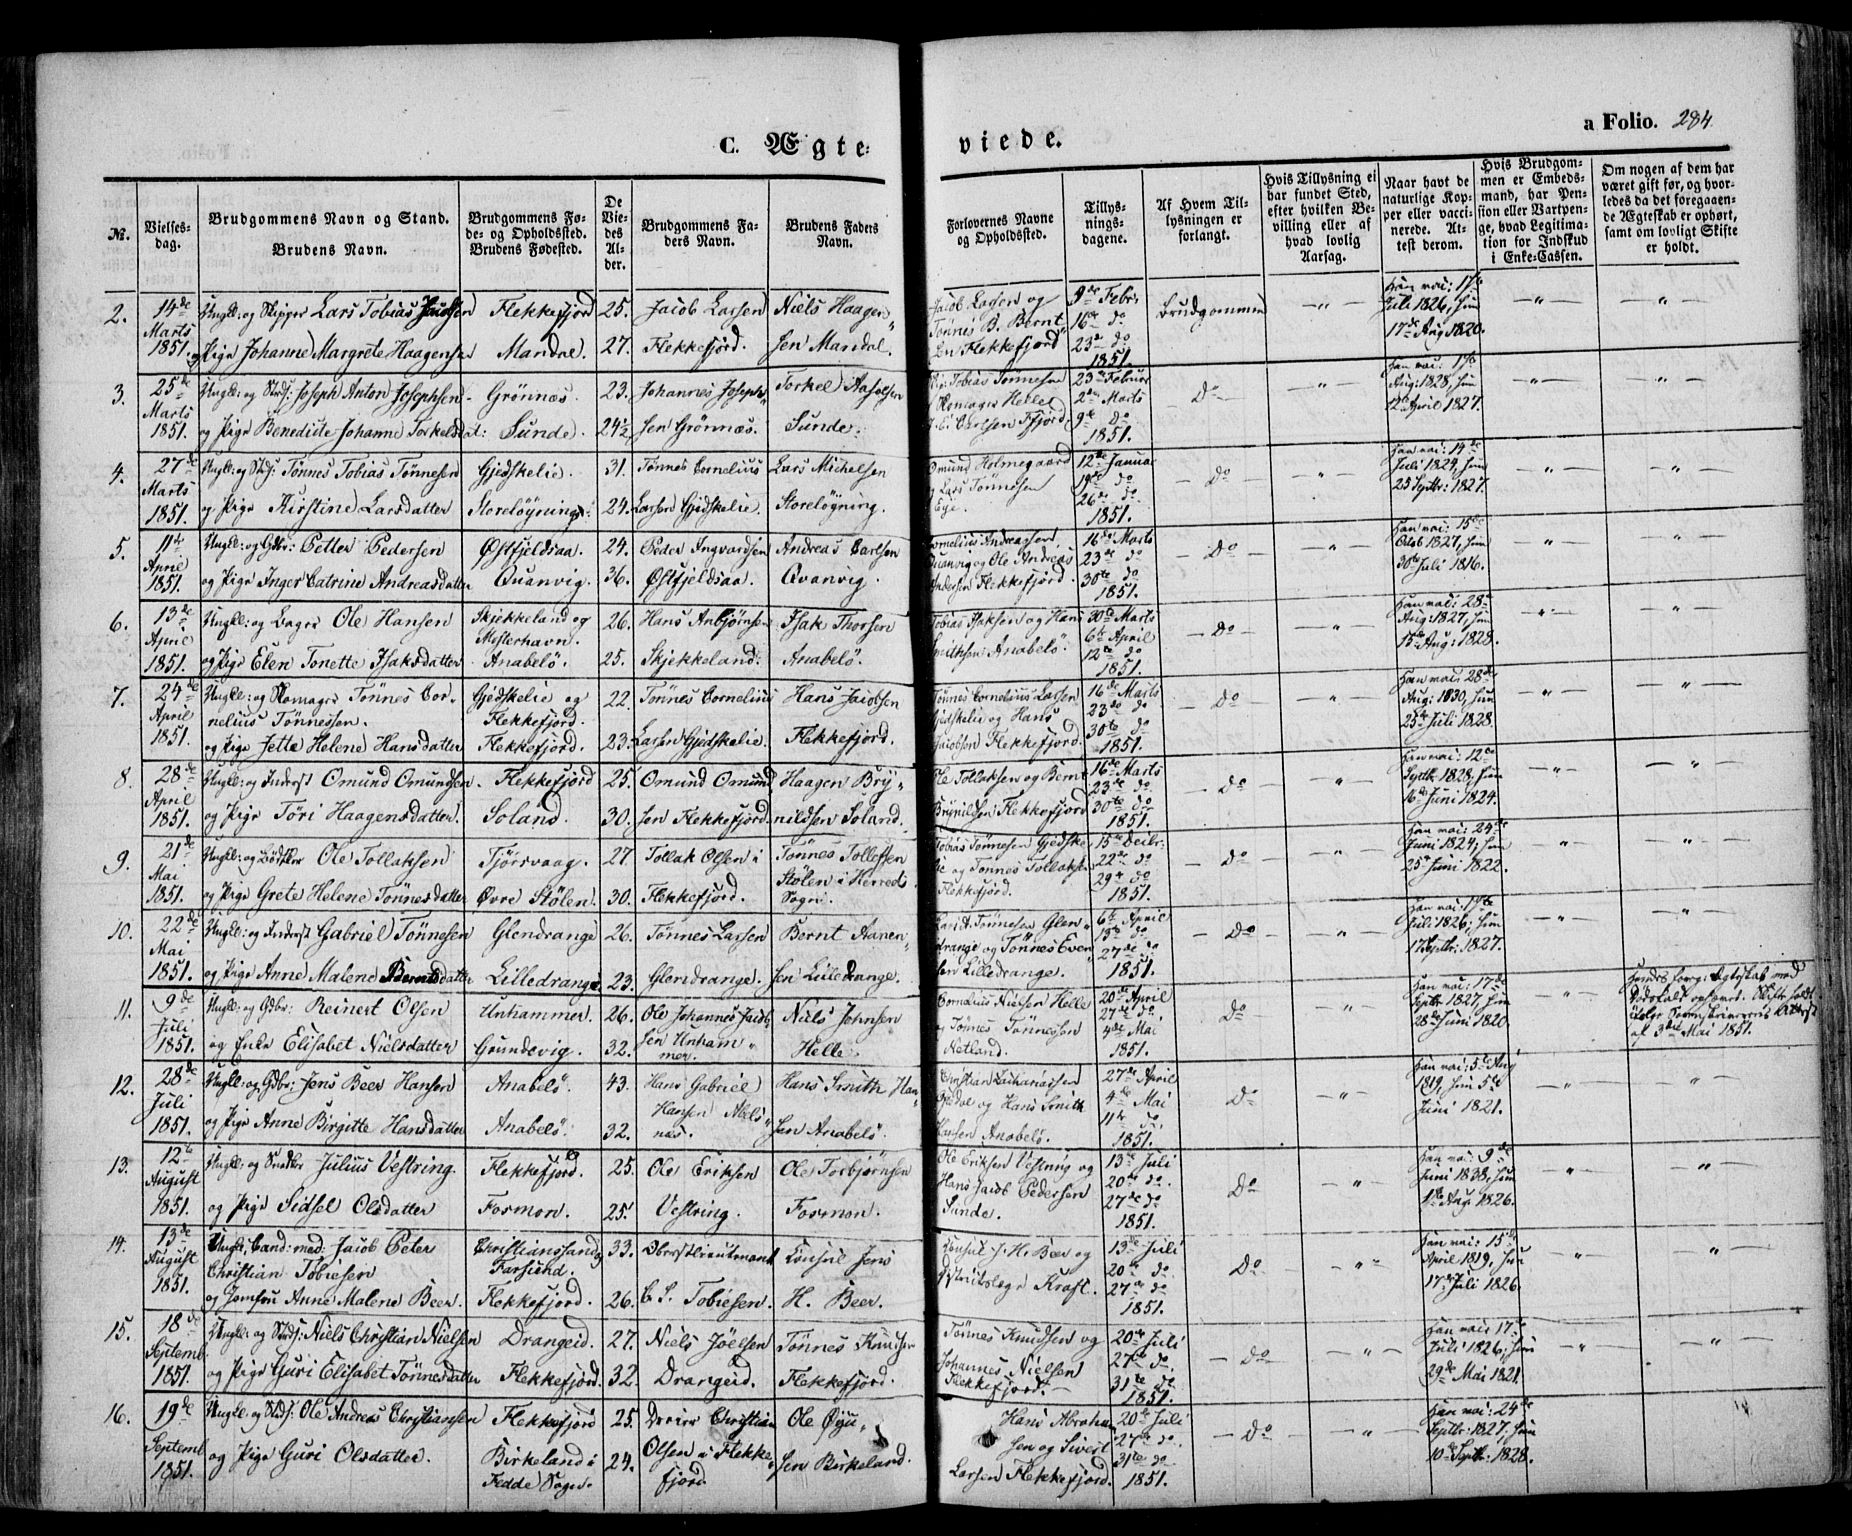 C. Ægte-
viede.
a Folio. 284.
№.
Vielses-
dag.
Brudgommens Navn og Stand.
Brudens Navn.
Brudgommens Fø-
de- og Opholdssted.
Brudens Fødested.
De
Vie-
des
Al-
der.
Brudgommens Fa-
ders Navn.
Brudens Faders
Navn.
Forlovernes Navne
og Opholdssted.
Tillys-
nings-
dagene.
Af Hvem Til-
lysningen er
forlangt.
Hvis Tillysning ei
har fundet Sted,
efter hvilken Be-
villing eller af
hvad lovlig
Aarsag.
Naar havt de
naturlige Kop-
per eller vacci-
nerede. At-
test derom.
Hvis Brudgom-
men er Embeds-
mand, har Pen-
sion eller Vartpen-
ge, hvad Legitima-
tion for Indskud
i Enke-Cassen.
Om nogen af dem har
været gift før, og hvor-
ledes da det foregaaen-
de Ægteskab er ophørt,
samt om lovligt Skifte
er holdt.
2. 14de Marts 1851. Ungk: og Skipper Lars Tobias Jacobsen Flekkefjord 25. Jacob Larsen Niels Haagen-
og Pige Johanne Margrete Haagensen Mandal 27. Flekkefjord. sen Mandal.
Jacob Larsen og Tønnes B. Berntsen Flekkefjord 9de Febr 16de do 23de do 1851. Brudgommen Han vai: Juli 1826, hun 17de Aug 1820.
3. 25de Marts 1851. Ungk: og Stdsj: Joseph Anton Josephsen Grønnæs. 23. Johannes Joseph- Torkel
og Pige Benedicte Johanne Torkelsdat: Sunde. 24½ sen Grønnæs. Sunde.
Tobias Tønnesen Helle Carlsen Fjord 23de Februar 2den Marts 9de do 1851. Do Han vai: Aug: 1828, hun 12te April 1827.
4. 27de Marts 1851. Ungk: og Stdsj: Tønnes Tobias Tønnesen Gjedskelie. 31. Tønnes Cornelius Lars Michelsen
og Pige Kirstine Larsdatter Storeløyning 24. Larsen Gjedskelie. Storeløgning.
Omund Holmegaard og Lars Tønnesen Eye. 12te Januar 19de do 26de do 1851. Do Han vai: 14de Juli 1824, hun 25 Septbr: 1827.
5. 11te April 1851. Ungk: og Gdbr: Petter Pedersen Østfjeldsaa. 24. Peder Ingvardsen Andreas Carlsen
og Pige Inger Catrine Andreasdatter Qvanvig. 36. Østfjeldsaa. Qvanvig.
Cornelius Andreassen Quanvig og Ole Andreas Andersen Flekkefjord. 16de Marts 23de do 30te do 1851. Do Han vai: 15de Octob 1827, hun 30te Juli 1816.
6. 13de April 1851. Ungk: og Bager Ole Hansen Skjekkeland og Misterhavn. 26. Hans Anbjørnsen Isak Thorsen
og Pige Elen Tonette Isaksdatter Anabelø. 25. Skjekkeland. Anabelø.
Tobias Isaksen og Hans Anabelø. 30te Marts 6te April 12te do 1851. Do Han vai: 28de Aug: 1827, hun 15de Aug: 1828.
7. 24de April 1851. Ungk: og Skomager Tønnes Cor-
nelius Tønnessen. Gjedskelie og Flekkefjord. 22. Tønnes Cornelius Hans Jacobsen
og Pige Jette Helene Hansdatter Flekkefjord. 23. Larsen Gjedskelie. Flekkefjord.
Tønnes Cornelius Larsen Gjedskelie og Hans Jacobsen Flekkefjord. 16de Marts 23de do 30te do 1851. Do Han vai: 28de Aug: 1830, hun 25de Juli 1828.
8. 28de April 1851. Ungk: og Inderst Omund Omundsen Flekkefjord 25. Omund Omund- Haagen Bry-
og Pige Tøri Haagensdatter. Soland. 30. sen Flekkefjord. nildsen Soland.
Ole Tollaksen og Bernt Brynildsen Flekkefjord 16de Marts 23de do 30te do 1851. Do Han vai: 12te Septbr 1828, hun 16de Juni 1824.
9. 21de Mai 1851. Ungk: og Bødker Ole Tollaksen Tjørsvaag. 27. Tollak Olsen i Tønnes Tollefsen
og Pige Grete Helene Tønnesdatter Øvre Stølen. 30. Flekkefjord. Stølen i Herreds Sogn.
Tobias Tønnesen Gjedskelie og Tønnes Tollaksen Flekkefjord. 15de Decbr. 22de do 29de do 1851. Do Han vai: 24de Juni 1824, hun 25de Juni 1822.
10. 22de Mai 1851. Ungk: og Inderst Gabriel Tønnesen Glendrange 26. Tønnes Larsen Bernt Aanen-
og Pige Anne Malene Berntsdatter Lilledrange 23. Glendrange. sen Lilledrange.
Tønnesen Glendrange og Tønnes Evensen Lilledrange. 6te April 13de do 27de do 1851. Do Han vai: Juli 1826, hun 17 Septbr: 1827.
11. 9de Juli 1851. Ungk: og Gdbr: Reinert Olsen Unhammer. 26. Ole Johannes Jacob- Niels Johnsen
og Enke Elisabet Nielsdatter Grundevig. 32. sen Unhammer. Helle.
Cornelius Nielsen Helle og Tønnes Tønnesen Netland. 20de April 27de do. 4de Mai 1851. Do Han vai: 17de Septbr 1827, hun 28de Juni 1820. Hendes forrige Ægteskab med Dødsfald ophævet. Skifte holdt ifølge Sorenskriverens Attest af 3die Mai 1851.
12. 28de Juli 1851. Ungk: og Gdbr: Jens Beer Hansen Anabelø. 43. Hans Gabriel Hans Smith Han-
og Pige Anne Birgitte Hansdatter Anabelø. 32. Hansen Abelsnæs. sen Anabelø.
Christian Zachariassen og Hans Smith Hansen Anabelø. 27de April 4de Mai 11te do. 1851. Do Han vai: 5te Aug 1819, hun 5te Juni 1821.
13. 12te August 1851. Ungk: og Snedker Julius Vestring. Flekkefjord. 25. Ole Eriksen Ole Torbjørnsen
og Pige Sidsel Olsdatter Fosmon. 25. Vestring. Fosmon.
Ole Eriksen Vestring og Hans Jacob Pedersen Sunde. 13de Juli 20de do. 27de do 1851. Do Han vai: 9de Juni 1838, hun 1ste Aug: 1826.
14. 13de August 1851. Ungk: Cand: med: Jacob Peter
Christian Tobiesen Christianssand og Farsund. 33. Oberstlieutenant Consul Jens
og Jomfru Anne Malene Beer. Flekkefjord. 26. C. S. Tobiesen. H. Beer.
Consul J. H. Beer og Districtslæge Kraft. 13de Juli 20de do. 27de do 1851. Do Han vai: 15de April 1819, hun 17de Juli 1826.
15. 18de Septemb. 1851. Ungk: og Stdsj: Niels Christian Nielsen Drangeid. 27. Niels Joelsen Tønnes Knudsen
og Pige Guri Elisabet Tønnesdatter Flekkefjord. 32. Drangeid. Flekkefjord.
Tønnes Knudsen og Johannes Nielsen Flekkefjord. 20de Juli 27de do. 31te do. 1851. Do Han vai: 17de Juli 1826, hun 29de Mai 1821.
16. 19de Septemb. 1851. Ungk: og Stdsj: Ole Andreas Christiansen Flekkefjord 25. Dreier Christian Ole Øyu-
og Pige Guri Olsdatter. Birkeland i Fedde Sogn. 24. Olsen i Flekkefjord. sen Birkeland.
Hans Abrahamsen og Sivert Larsen Flekkefjord. 20de Juli 27de do. 31te do 1851. Do Han vai: 24de Septbr: 1827, hun 10de Septbr: 1828.